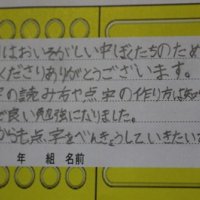 はおいそがしい中ぼくたちのため
くださりありがとうございます。
の読み方や点字の作り方は
で良い勉強になりました。
からも点字をべんきょうしていきたいで
年 組 名前